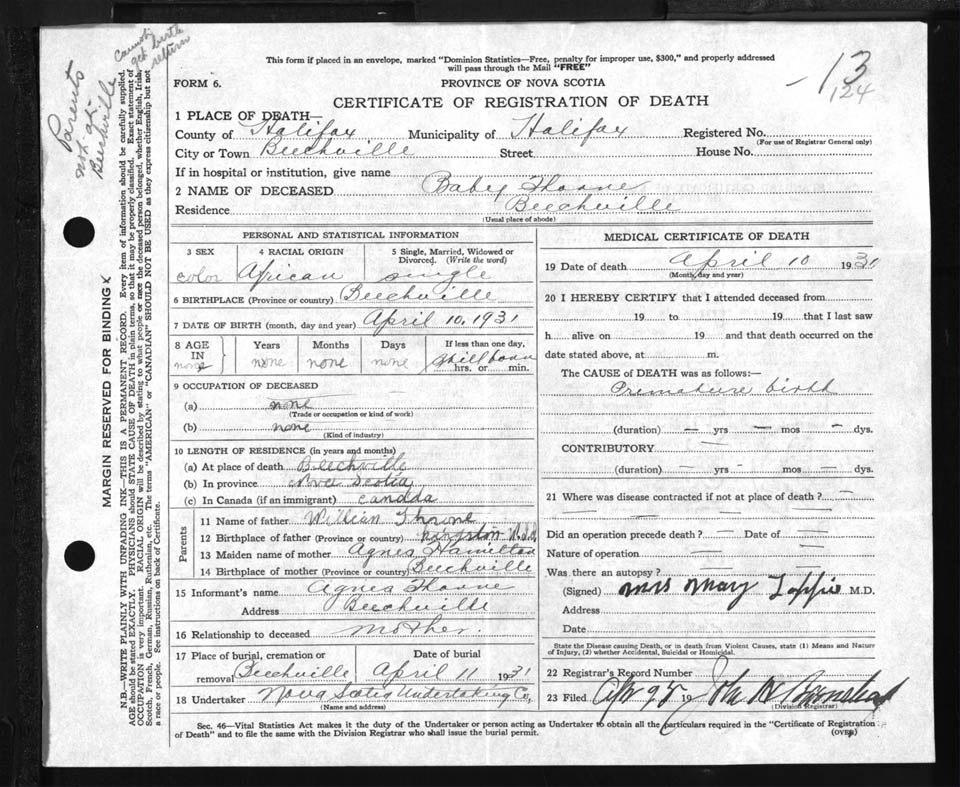 Cannot
get birth
return
Parents
not at
Beechville
This form if placed in an envelope, marked "Dominion Statistics—Free, penalty for improper use, $300," and properly addressed
will pass through the Mail "FREE"
FORM 6.
PROVINCE OF NOVA SCOTIA
13
124
CERTIFICATE OF REGISTRATION OF DEATH
1 PLACE OF DEATH—
County of Halifax Municipality of Halifax Registered No.
(For use of Registrar General only)
City or Town Beechville Street House No.
If in hospital or institution, give name
2 NAME OF DECEASED Baby Thorne
Residence Beechville
(Usual place of abode)
PERSONAL AND STATISTICAL INFORMATION
3 SEX 4 RACIAL ORIGIN 5 Single, Married, Widowed or
Divorced. (Write the word)
color African single
6 BIRTHPLACE (Province or country) Beechville
7 DATE OF BIRTH (month, day and year) April 10, 1931
8 AGE Years Months Days If less than one day,
IN
none none none none Stillborn
hrs. or min.
9 OCCUPATION OF DECEASED
(a) none
(Trade or occupation or kind of work)
(b) none
(Kind of industry)
10 LENGTH OF RESIDENCE (in years and months)
(a) At place of death Beechville
(b) In province Nova Scotia
(c) In Canada (if an immigrant) Canada
Parents
11 Name of father William Thorne
12 Birthplace of father (Province or country)
13 Maiden name of mother Agnes Hamilton
14 Birthplace of mother (Province or country) Beechville
15 Informant's name Agnes Thorne
Address Beechville
16 Relationship to deceased mother.
17 Place of burial, cremation or Date of burial
removal Beechville April 11 1931
18 Undertaker Nova Scotia Undertaking Co,
(Name and address)
MEDICAL CERTIFICATE OF DEATH
19 Date of death April 10 1931
(Month, day and year)
20 I HEREBY CERTIFY that I attended deceased from
19 to 19 that I last saw
h alive on 19 and that death occurred on the
date stated above, at m.
The CAUSE of DEATH was as follows:—
Premature birth
(duration) — yrs — mos — dys.
CONTRIBUTORY —
(duration) — yrs — mos — dys.
21 Where was disease contracted if not at place of death? —
Did an operation precede death? — Date of —
Nature of operation —
Was there an autopsy? —
(Signed) Mrs May M.D.
Address
Date
State the Disease causing Death, or in death from Violent Causes, state (1) Means and Nature
of Injury, (2) whether Accidental, Suicidal or Homicidal.
22 Registrar's Record Number
23 Filed 19
(Division Registrar)
Sec. 46—Vital Statistics Act makes it the duty of the Undertaker or person acting as Undertaker to obtain all the particulars required in the "Certificate of Registration
of Death" and to file the same with the Division Registrar who shall issue the burial permit.
(OVER)
MARGIN RESERVED FOR BINDING
N.B.—WRITE PLAINLY WITH UNFADING INK—THIS IS A PERMANENT RECORD. Every item of information should be carefully supplied.
AGE should be stated EXACTLY. PHYSICIANS should STATE CAUSE OF DEATH in plain terms, so that it may be properly classified. Exact statement of
OCCUPATION is very important. RACIAL ORIGIN will be described by stating to what people or race the deceased person belonged, whether English, Irish,
Scotch, French, German, Russian, Ruthenian, etc. The terms "AMERICAN" or "CANADIAN" SHOULD NOT BE USED as they express citizenship but not
a race or people. See instructions on back of Certificate.